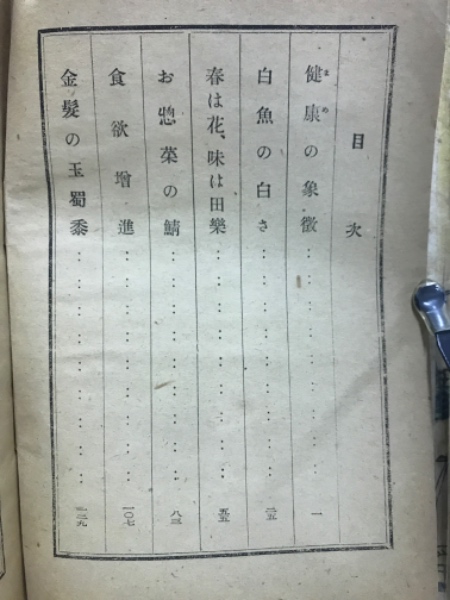 目次
健康の象徴……………一
白魚の白さ……………二五
春は花、味は田樂……………五五
お惣菜の鯖……………八三
食欲増進……………一〇七
金髮の玉蜀黍……………一二九